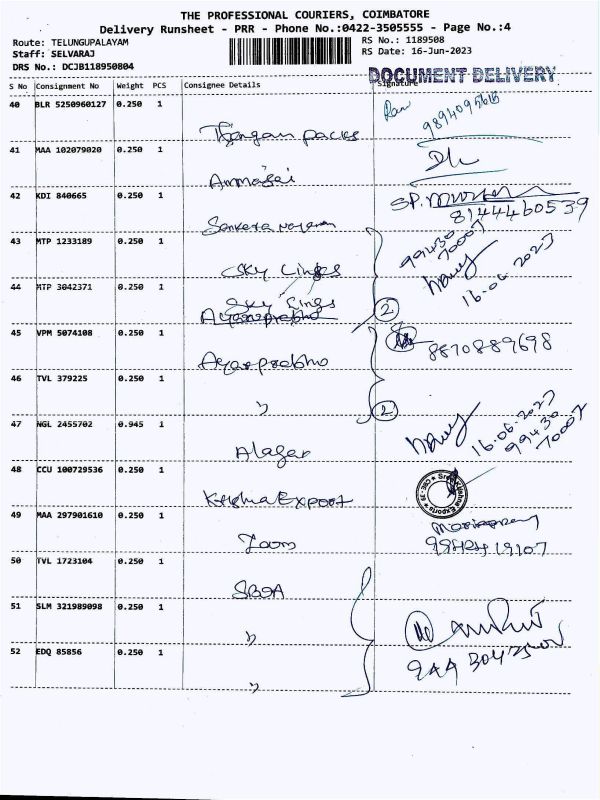 THE PROFESSIONAL COURIERS, COIMBATORE
Delivery Runsheet - PRR - Phone No.:0422-3505555 - Page No.:4
Route: TELUNGUPALAYAM
Staff: SELVARAJ
DRS No.: DCJB118950804
RS No.: 1189508
RS Date: 16-Jun-2023
DOCUMENT DELIVERY
S No Consignment No Weight PCS Consignee Details Signature
40 BLR 5250960127 0.250 1
41 MAA 102079020 0.250 1
Ammasai
42 KDI 840665 0.250 1
8144460539
43 MTP 1233189 0.250 1
Sky Lings
99430
70007
16.06.2023
44 MTP 3042371 0.250 1
Sky Lings
2
45 VPM 5074108 0.250 1
Ayarprabho
8870889698
46 TVL 379225 0.250 1
"
2
47 NGL 2455702 0.945 1
Alagar
16.06.2023
99430
70007
48 CCU 100729536 0.250 1
Krishna Export
49 MAA 297901610 0.250 1
Zoom
50 TVL 1723104 0.250 1
51 SLM 321989098 0.250 1
"
52 EDQ 85856 0.250 1
"